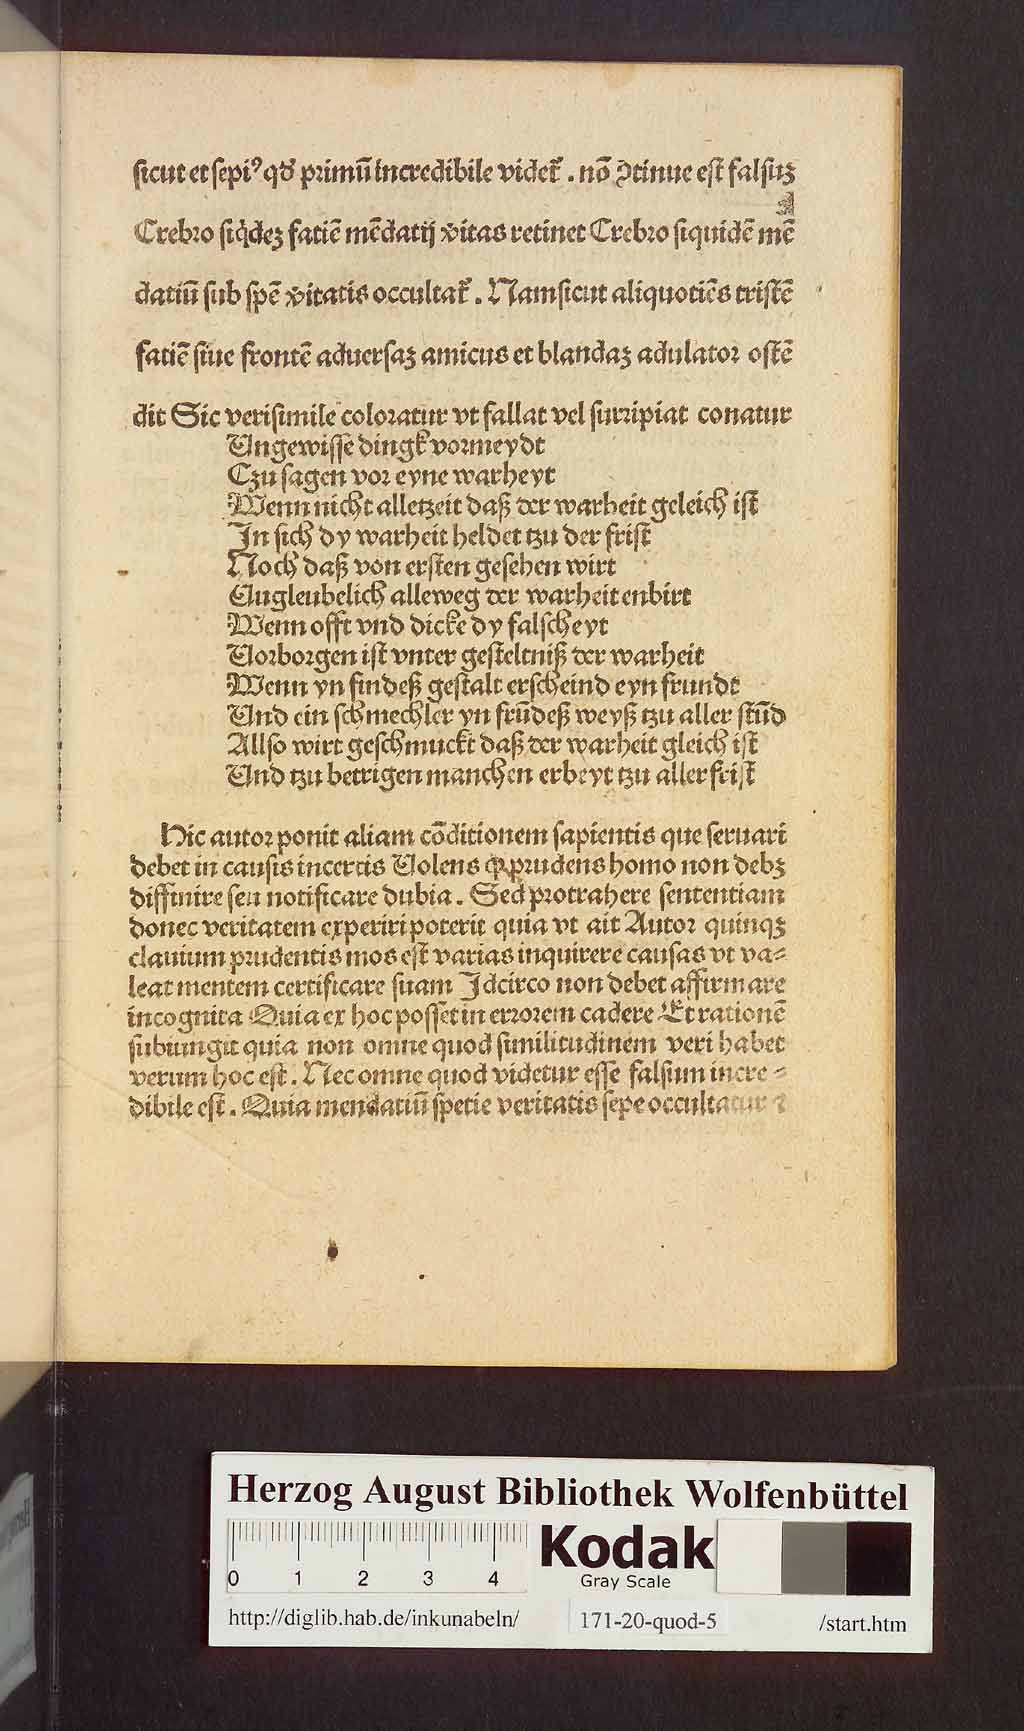 sicut et sepiꝰ qd' primū incredibile videt̃. nō ꝯtinue est falsuꝫ
Crebro siq̇deꝫ fatiē mēdatij v̓itas retinet Crebro siquidē mē
datiū sub spē v̓itatis occultat̃. Nam sicut aliquotiēs tristē
fatiē siue frontē aduersaꝫ amicus et blandaꝫ adulator ostē
dit Sic verisimile coloratur vt fallat vel surripiat conatur
Ungewisse dingk vormeydt
Czu sagen vor eyne warheyt
Wenn nicht alletzeit daß der warheit geleich ist
In sich dy warheit heldet tzu der frist
Noch daß von ersten gesehen wirt
Ungleubelich alleweg der warheit enbirt
Wenn offt vnd dicke dy falscheyt
Vorborgen ist vnter gesteltniß der warheit
Wenn yn findeß gestalt erscheind eyn frundt
Und ein schmechler yn frūdeß weyß tzu aller stūd
Allso wirt geschmuckt daß der warheit gleich ist
Und tzu betrigen manchen erbeyt tzu aller frist
Hic autor ponit aliam cōditionem sapientis que seruari
debet in causis incertis Volens ꝙ prudens homo non debꝫ
diffinire seu notificare dubia. Sed protrahere sententiam
donec veritatem experiri poterit quia vt ait Autor quinqꝫ
clauium prudentis mos est varias inquirere causas vt va-
leat mentem certificare suam Idcirco non debet affirmare
incognita Quia ex hoc posset in errorem cadere Et rationē
subiungit quia non omne quod similitudinem veri habet
verum hoc est. Nec omne quod videtur esse falsum incre-
dibile est. Quia mendatiū spetie veritatis sepe occultatur ⁊
Herzog August Bibliothek Wolfenbüttel
0 1 2 3 4
Kodak
Gray Scale
http://diglib.hab.de/inkunabeln/ 171-20-quod-5 /start.htm